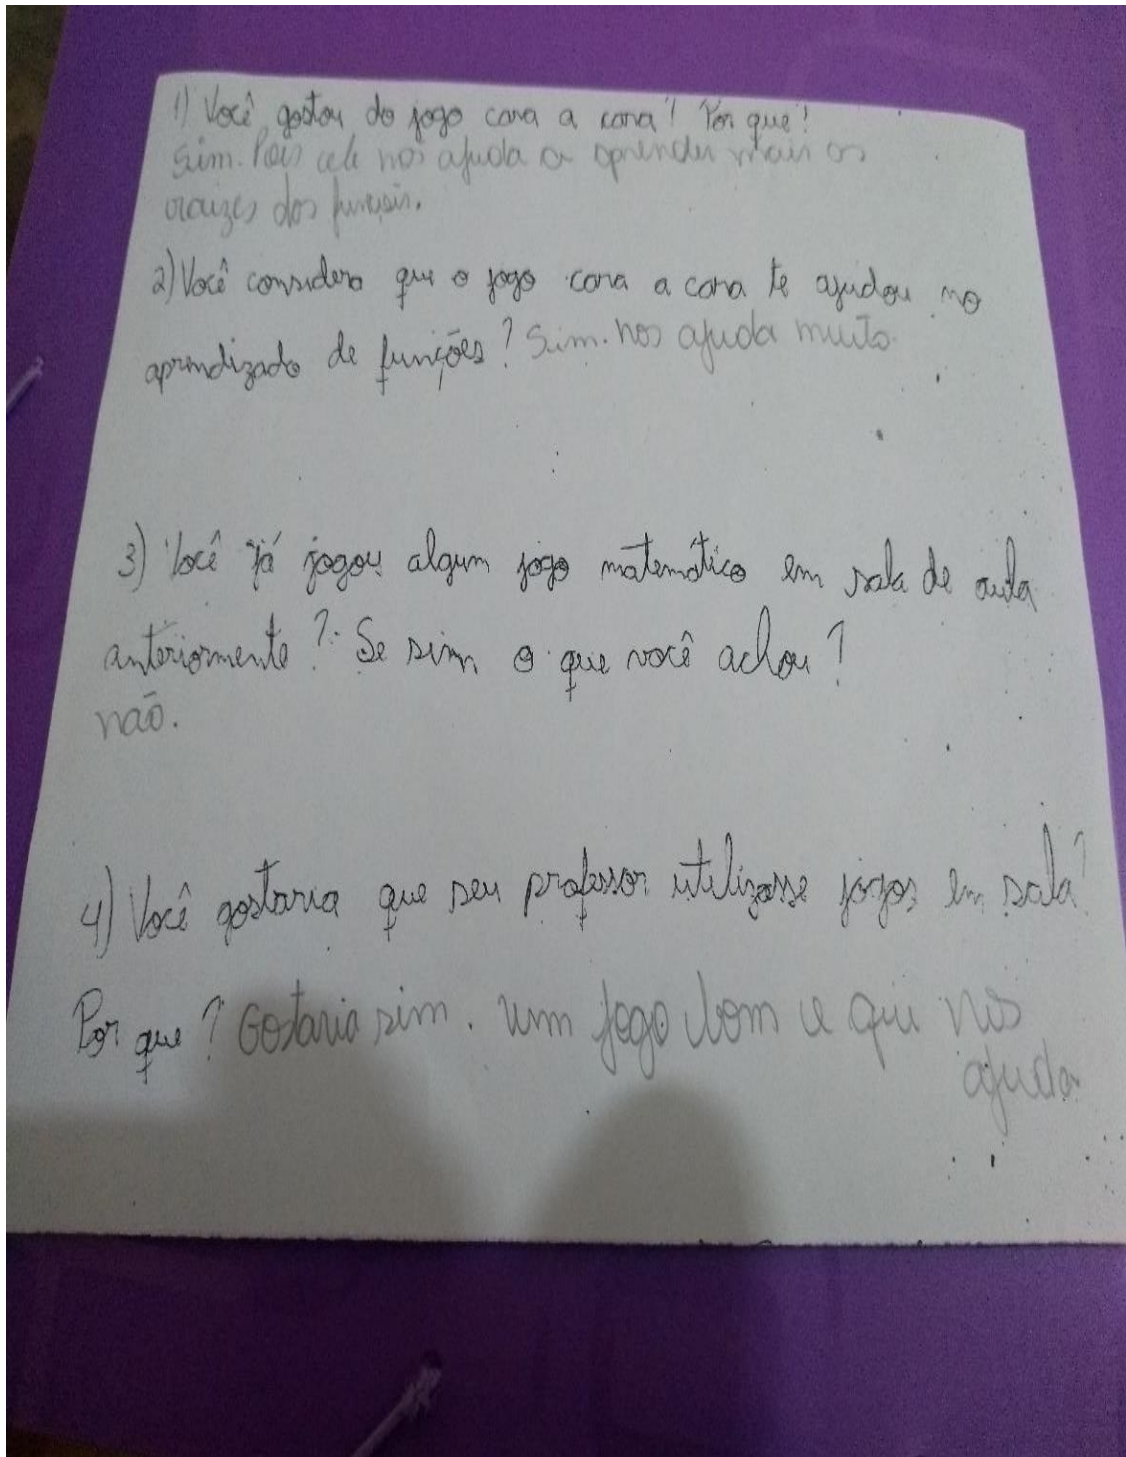 1) Você gostou do jogo cara a cara? Por que?
Sim. Pois ele nos ajuda a aprender mais as
raizes das
2) Você considera que o jogo cara a cara te ajudou no
aprendizado de funções? Sim. nos ajuda muito.
3) Você já jogou algum jogo matemático em sala de aula
anteriormente? Se sim o que você achou?
não.
4) Você gostaria que seu professor utilizasse jogos em sala?
Por que? Gostaria sim. um jogo bom e que nos
ajuda